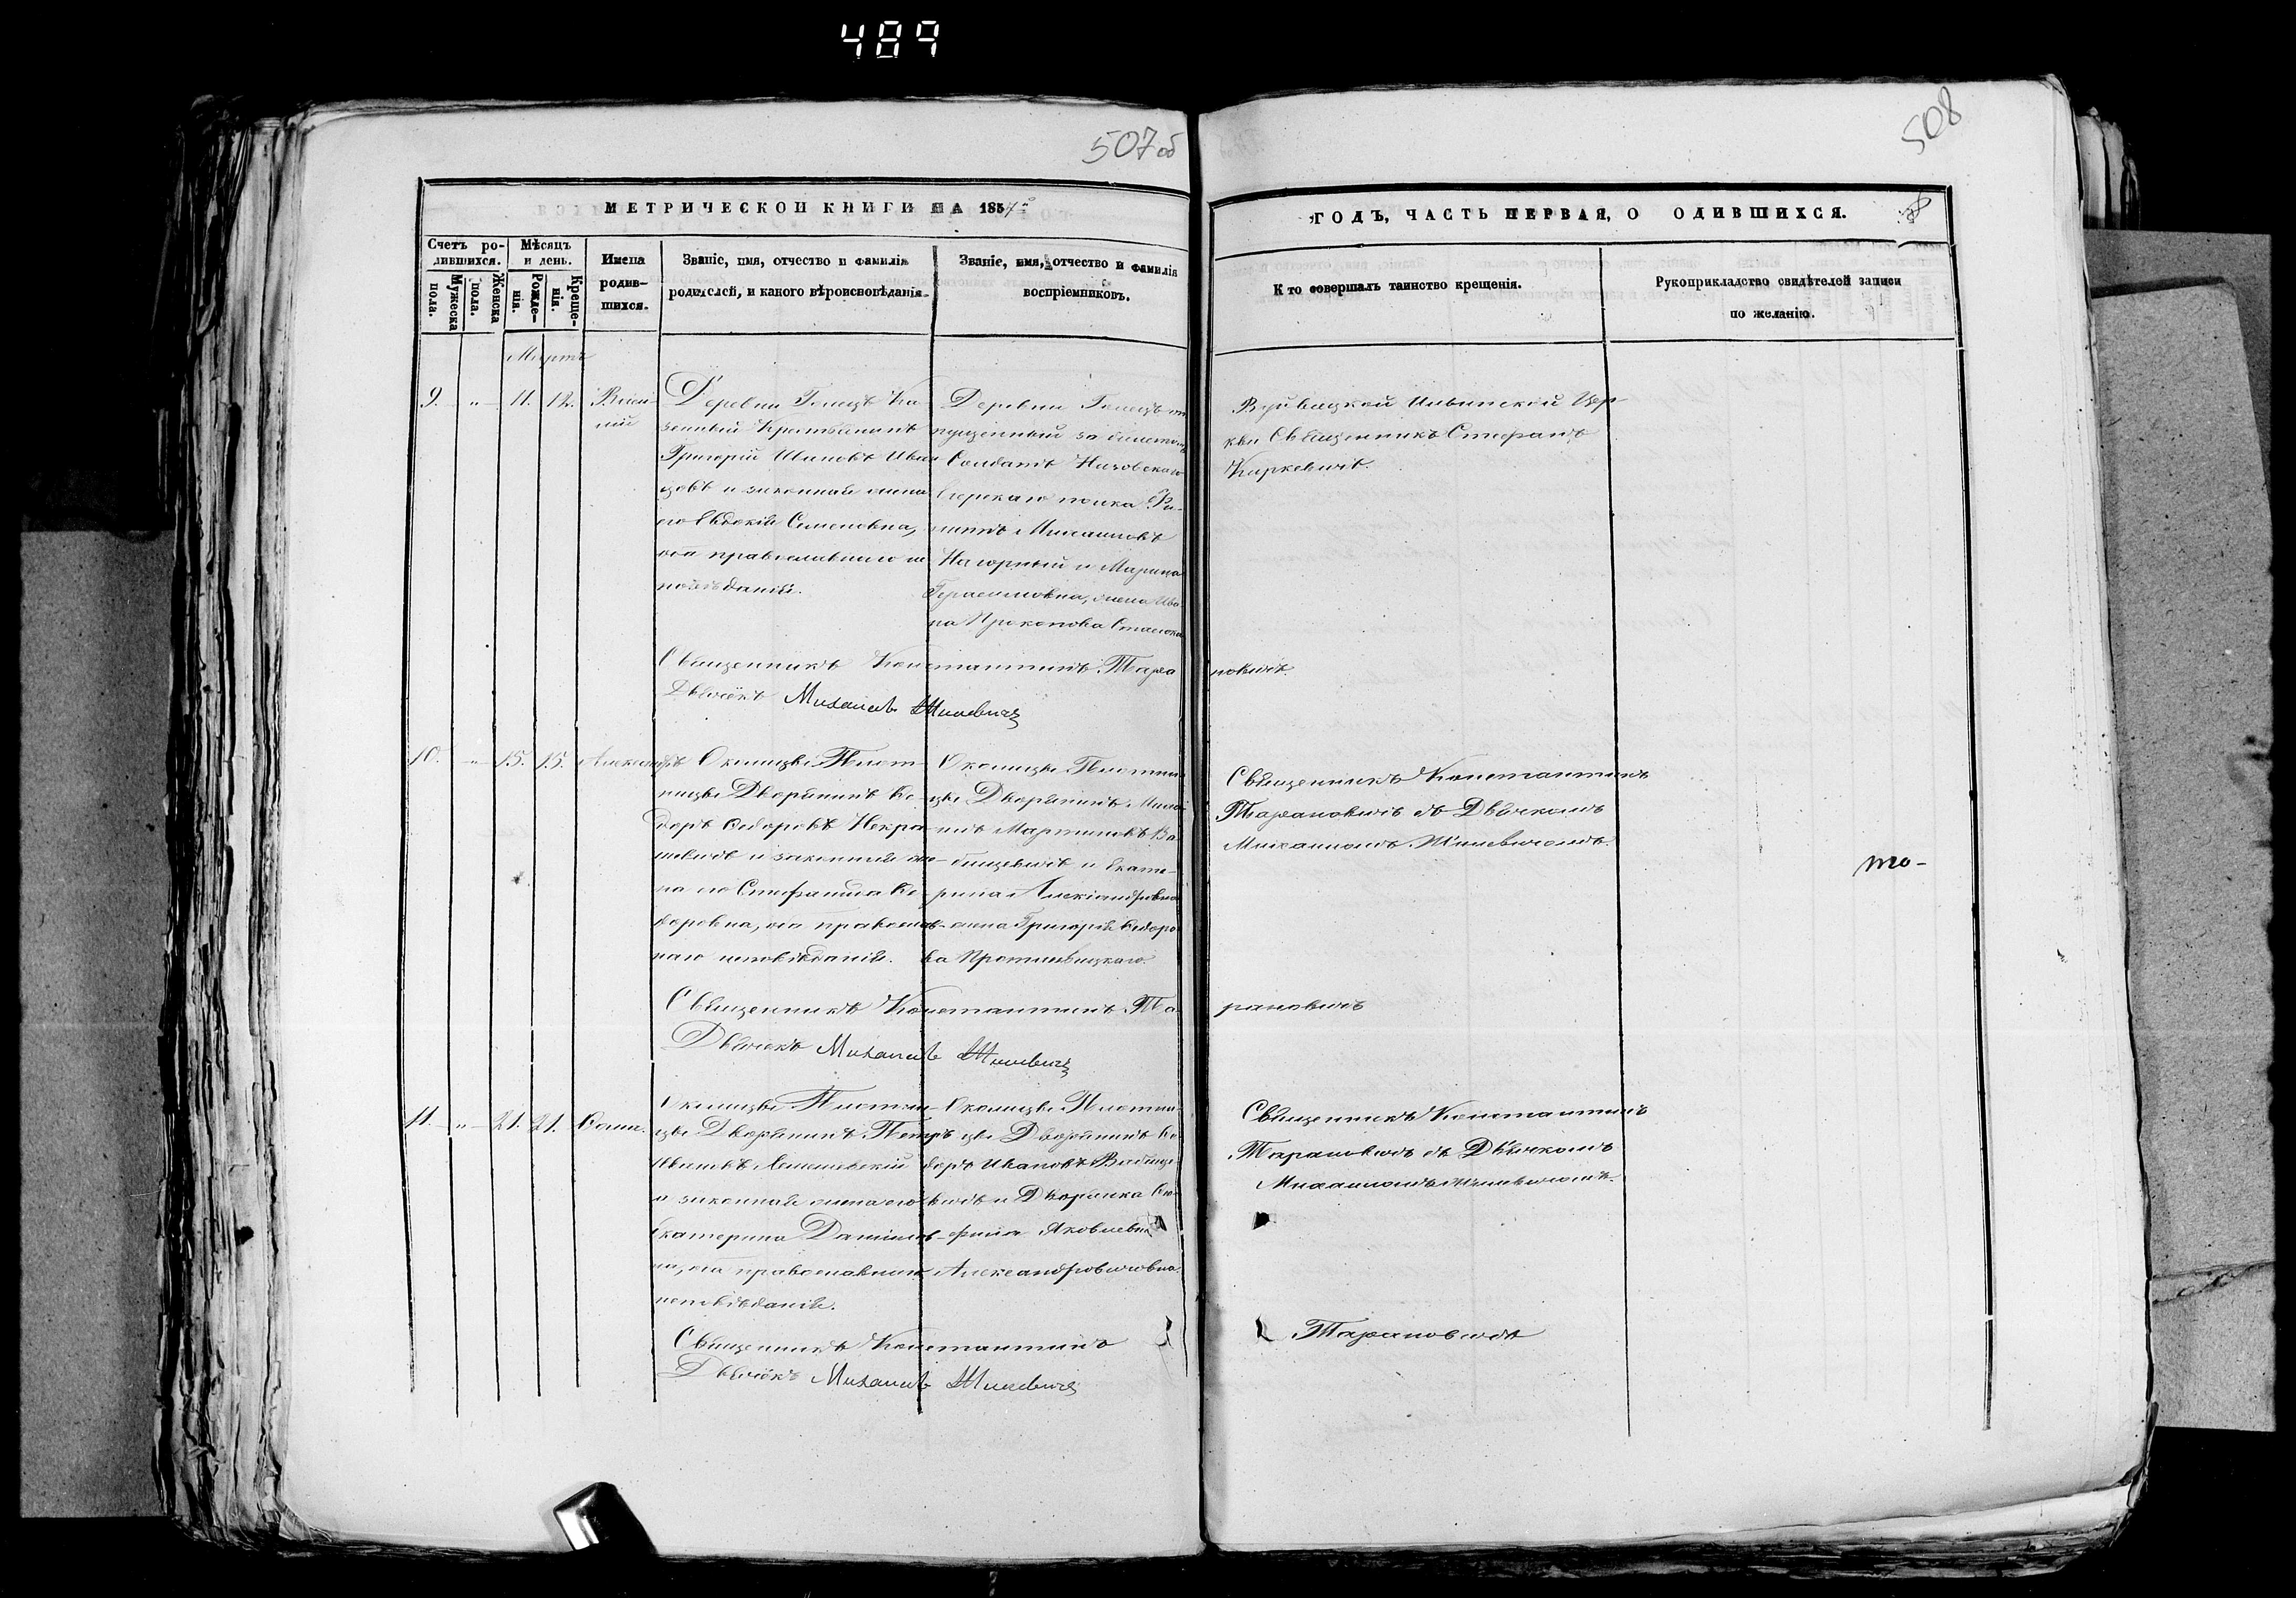 489
507об
508
МЕТРИЧЕСКОЙ КНИГИ НА 1857й
ГОДЪ, ЧАСТЬ ПЕРВАЯ, О ОДИВШИХСЯ.
Счетъ ро-
дившихся.
Мужеска
пола.
Женска
пола.
Мѣсяцъ
и день.
Рожде-
нія.
Креще-
нія.
Имена
родив-
шихся.
Званіе, имя, отчество и фамилія
родителей, и какого вѣроисповѣданія.
Званіе, имя, отчество и фамилія
воспріемниковъ.
Кто совершалъ таинство крещенія.
Рукоприкладство свидѣтелей записи
по желанію.
Мартъ
9. " 11. 12.
Деревни Ка-
зенный Крестьянинъ
Григорій Ива
и законная жена
его Евдокія Семеновна,
оба православнаго ис
повѣданія.
Деревни от
пущенный за билетомъ
Солдатъ Низовскаго
Егерскаго полка Фи-
липпъ Михаиловъ
Нагорный и Марина
Герасимовна, жена Ива
на Прокопова
Ильинской Цер
кви Священникъ Стефанъ
Священникъ Константинъ Тара
новичъ
Дьячекъ Михаилъ Жилевичъ
10. " 15. 15. Александръ
Околицы Плот-
ницы Дворянинъ Ѳе-
доръ Ѳедоровъ Некра
шевичъ и законная же-
на его Стефанида Ѳе-
доровна, оба православ-
наго исповѣданія.
Околицы Плотни
цы Дворянинъ
Мартиновъ Ва
бищевичъ и Екате-
рина Александровна
жена Григорія Ѳедоро
ва Протасевицкаго.
Священникъ Константинъ
Тарановичъ съ Дьячкомъ
Михаиломъ Жилевичомъ.
то-
Священникъ Константинъ Та
рановичъ
Дьячекъ Михаилъ Жилевичъ
11. " 21. 21.
Околицы Плотни-
цы Дворянинъ Петръ
Ивановъ
и законная жена его
Екатерина Данилов-
на, оба православнаго
исповѣданія.
Околицы Плотни
цы Дворянинъ Ѳе
доръ Ивановъ Вабище
вичъ и Дворянка Со
фія Яковлевна
Александровичовна.
Священникъ Константинъ
Тарановичъ съ Дьячкомъ
Михаиломъ Жилевичомъ.
Священникъ Константинъ
Тарановичъ
Дьячекъ Михаилъ Жилевичъ